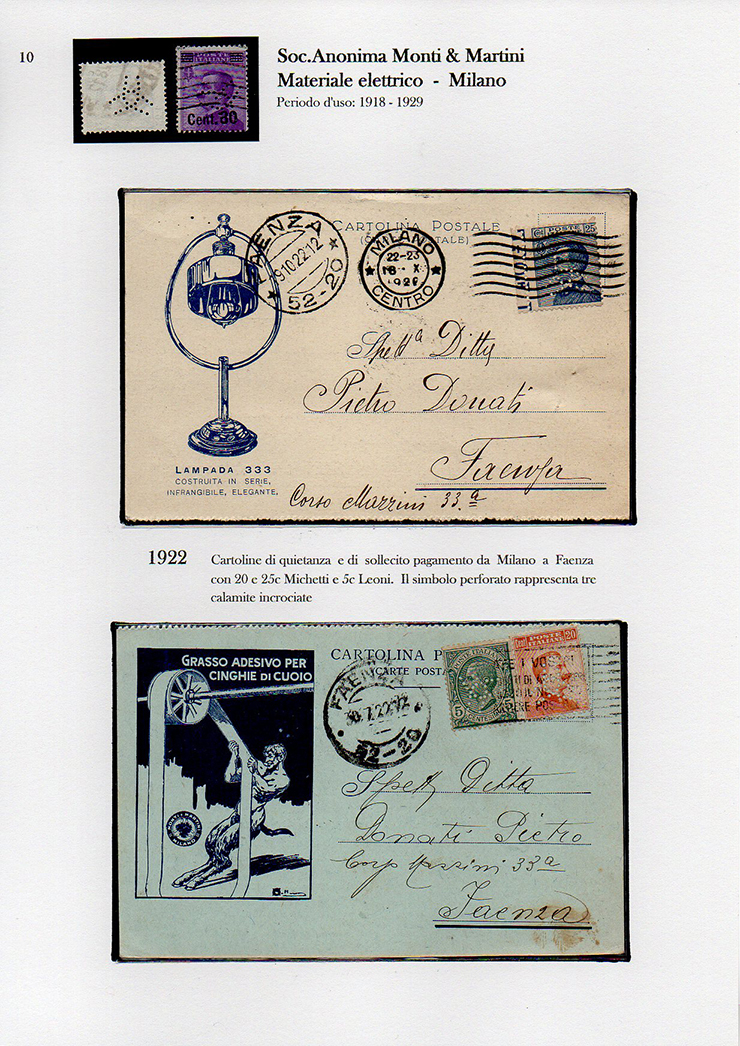 10
Soc.Anonima Monti & Martini
Materiale elettrico - Milano
Periodo d'uso: 1918 - 1929
POSTE
ITALIANE
Cent. 30
CARTOLINA POSTALE
FAENZA
9 10 22 12
52-20
MILANO
22-23
X
CENTRO
POSTE 25
Spett.ª Ditta
Pietro Donati
Faenza
Corso Mazzini 33.ª
LAMPADA 333
COSTRUITA IN SERIE,
INFRANGIBILE, ELEGANTE.
1922
Cartoline di quietanza e di sollecito pagamento da Milano a Faenza
con 20 e 25c Michetti e 5c Leoni. Il simbolo perforato rappresenta tre
calamite incrociate
GRASSO ADESIVO PER
CINGHIE DI CUOIO
MILANO
CARTOLINA P
CARTE POSTA
FAENZA
30.7.22
52-20
POSTE ITALIANE
5 CENTESIMI 5
POSTE 20
ITALIANE
Spett Ditta
Donati Pietro
Corso Mazzini 33ª
Faenza